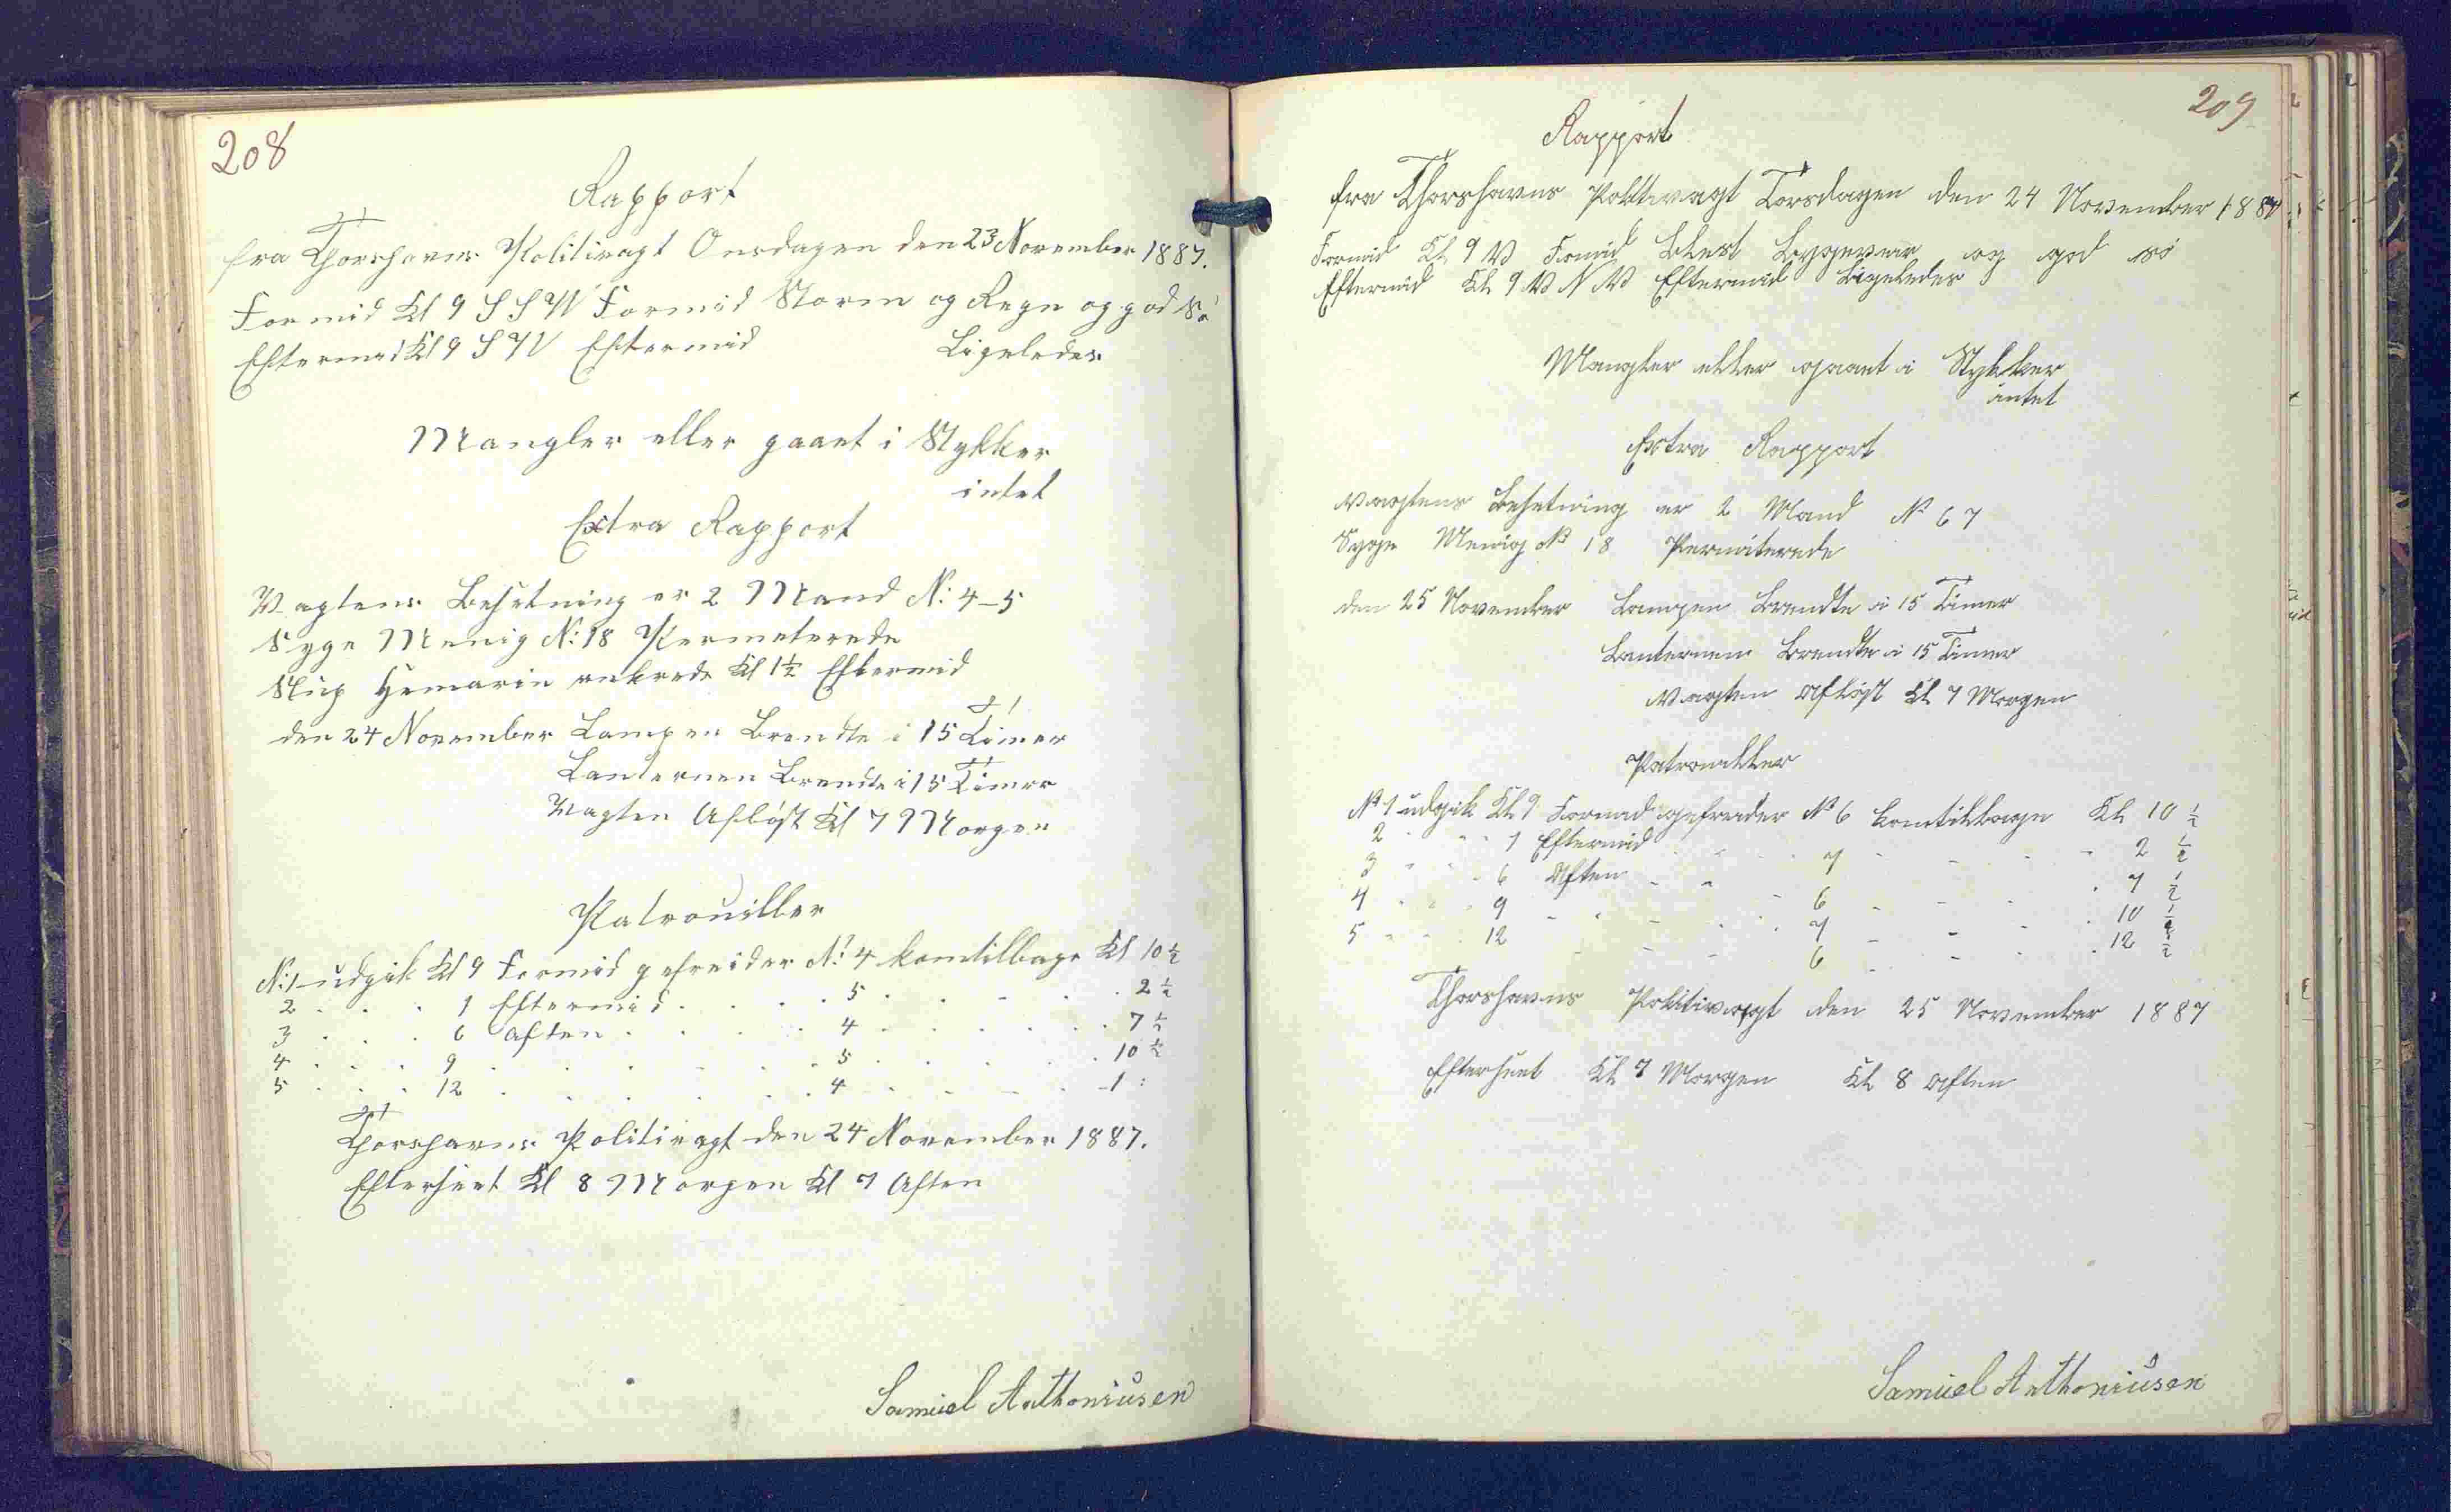 208
Rapport
fra Thorshavns Politivagt Onsdagen den 23 November 1887.
Formid Kl 9 S S W Formid Storm og Regn og god Sö
Eftermid Kl 9 S W Eftermid Ligeledes
Mangler eller gaaet i Stykker
intet
Extra Rapport
Vagtens Besetning er 2 Mand N: 4-5
Syge Menig N: 18 Permeterede
Slup Hemarin ankrede Kl 1½ Eftermid
den 24 November Lampen Brendte i 15 Timer
Lanternen Brendte i 15 Timer
Vagten Aflöst Kl 7 Morgen
Patrouiller
N: 1 udgik Kl 9 Formid gefreider N: 4 kom tilbage Kl 10½
2 . . . 1 Eftermid . . . . 5 . . . . . 2½
3 . . . 6 Aften . . . . 4 . . . . . 7½
4 . . . 9 . . . . . 5 . . . . . 10½
5 . . . 12 . . . . . 4 . . . . . 1 :
Thorshavns Politivagt den 24 November 1887.
Efterseet Kl 8 Morgen Kl 7 Aften
Samuel Anthoniusen
209
Rapport
fra Thorshavns Politivagt Torsdagen den 24 November 1887
Formid Kl 9 V Formid Blest Bygeveir og god sö
Eftermid Kl 9 V N V Eftermid Ligeledes
Mangler eller gaaet i Stykker
intet
Extra Rapport
Vagtens Besetning er 2 Mand N 6 7
Syge Menig N 18 Permiterede
den 25 November Lampen Brendte i 15 Timer
Lanternen Brendte i 15 Timer
Vagten Aflöst Kl 7 Morgen
Patrouiller
N 1 udgik Kl 9 Formid gefreider N 6 kom tilbage Kl 10 ½
2 . . . 1 Eftermid . . . 7 . . . 2 ½
3 . . . 6 Aften . . . 6 . . . 7 ½
4 . . . 9 . . . 7 . . . 10 ½
5 . . . 12 . . . 6 . . . 12 ½
Thorshavns Politivagt den 25 November 1887
Efterseet Kl 7 Morgen Kl 8 Aften
Samuel Anthoniusen